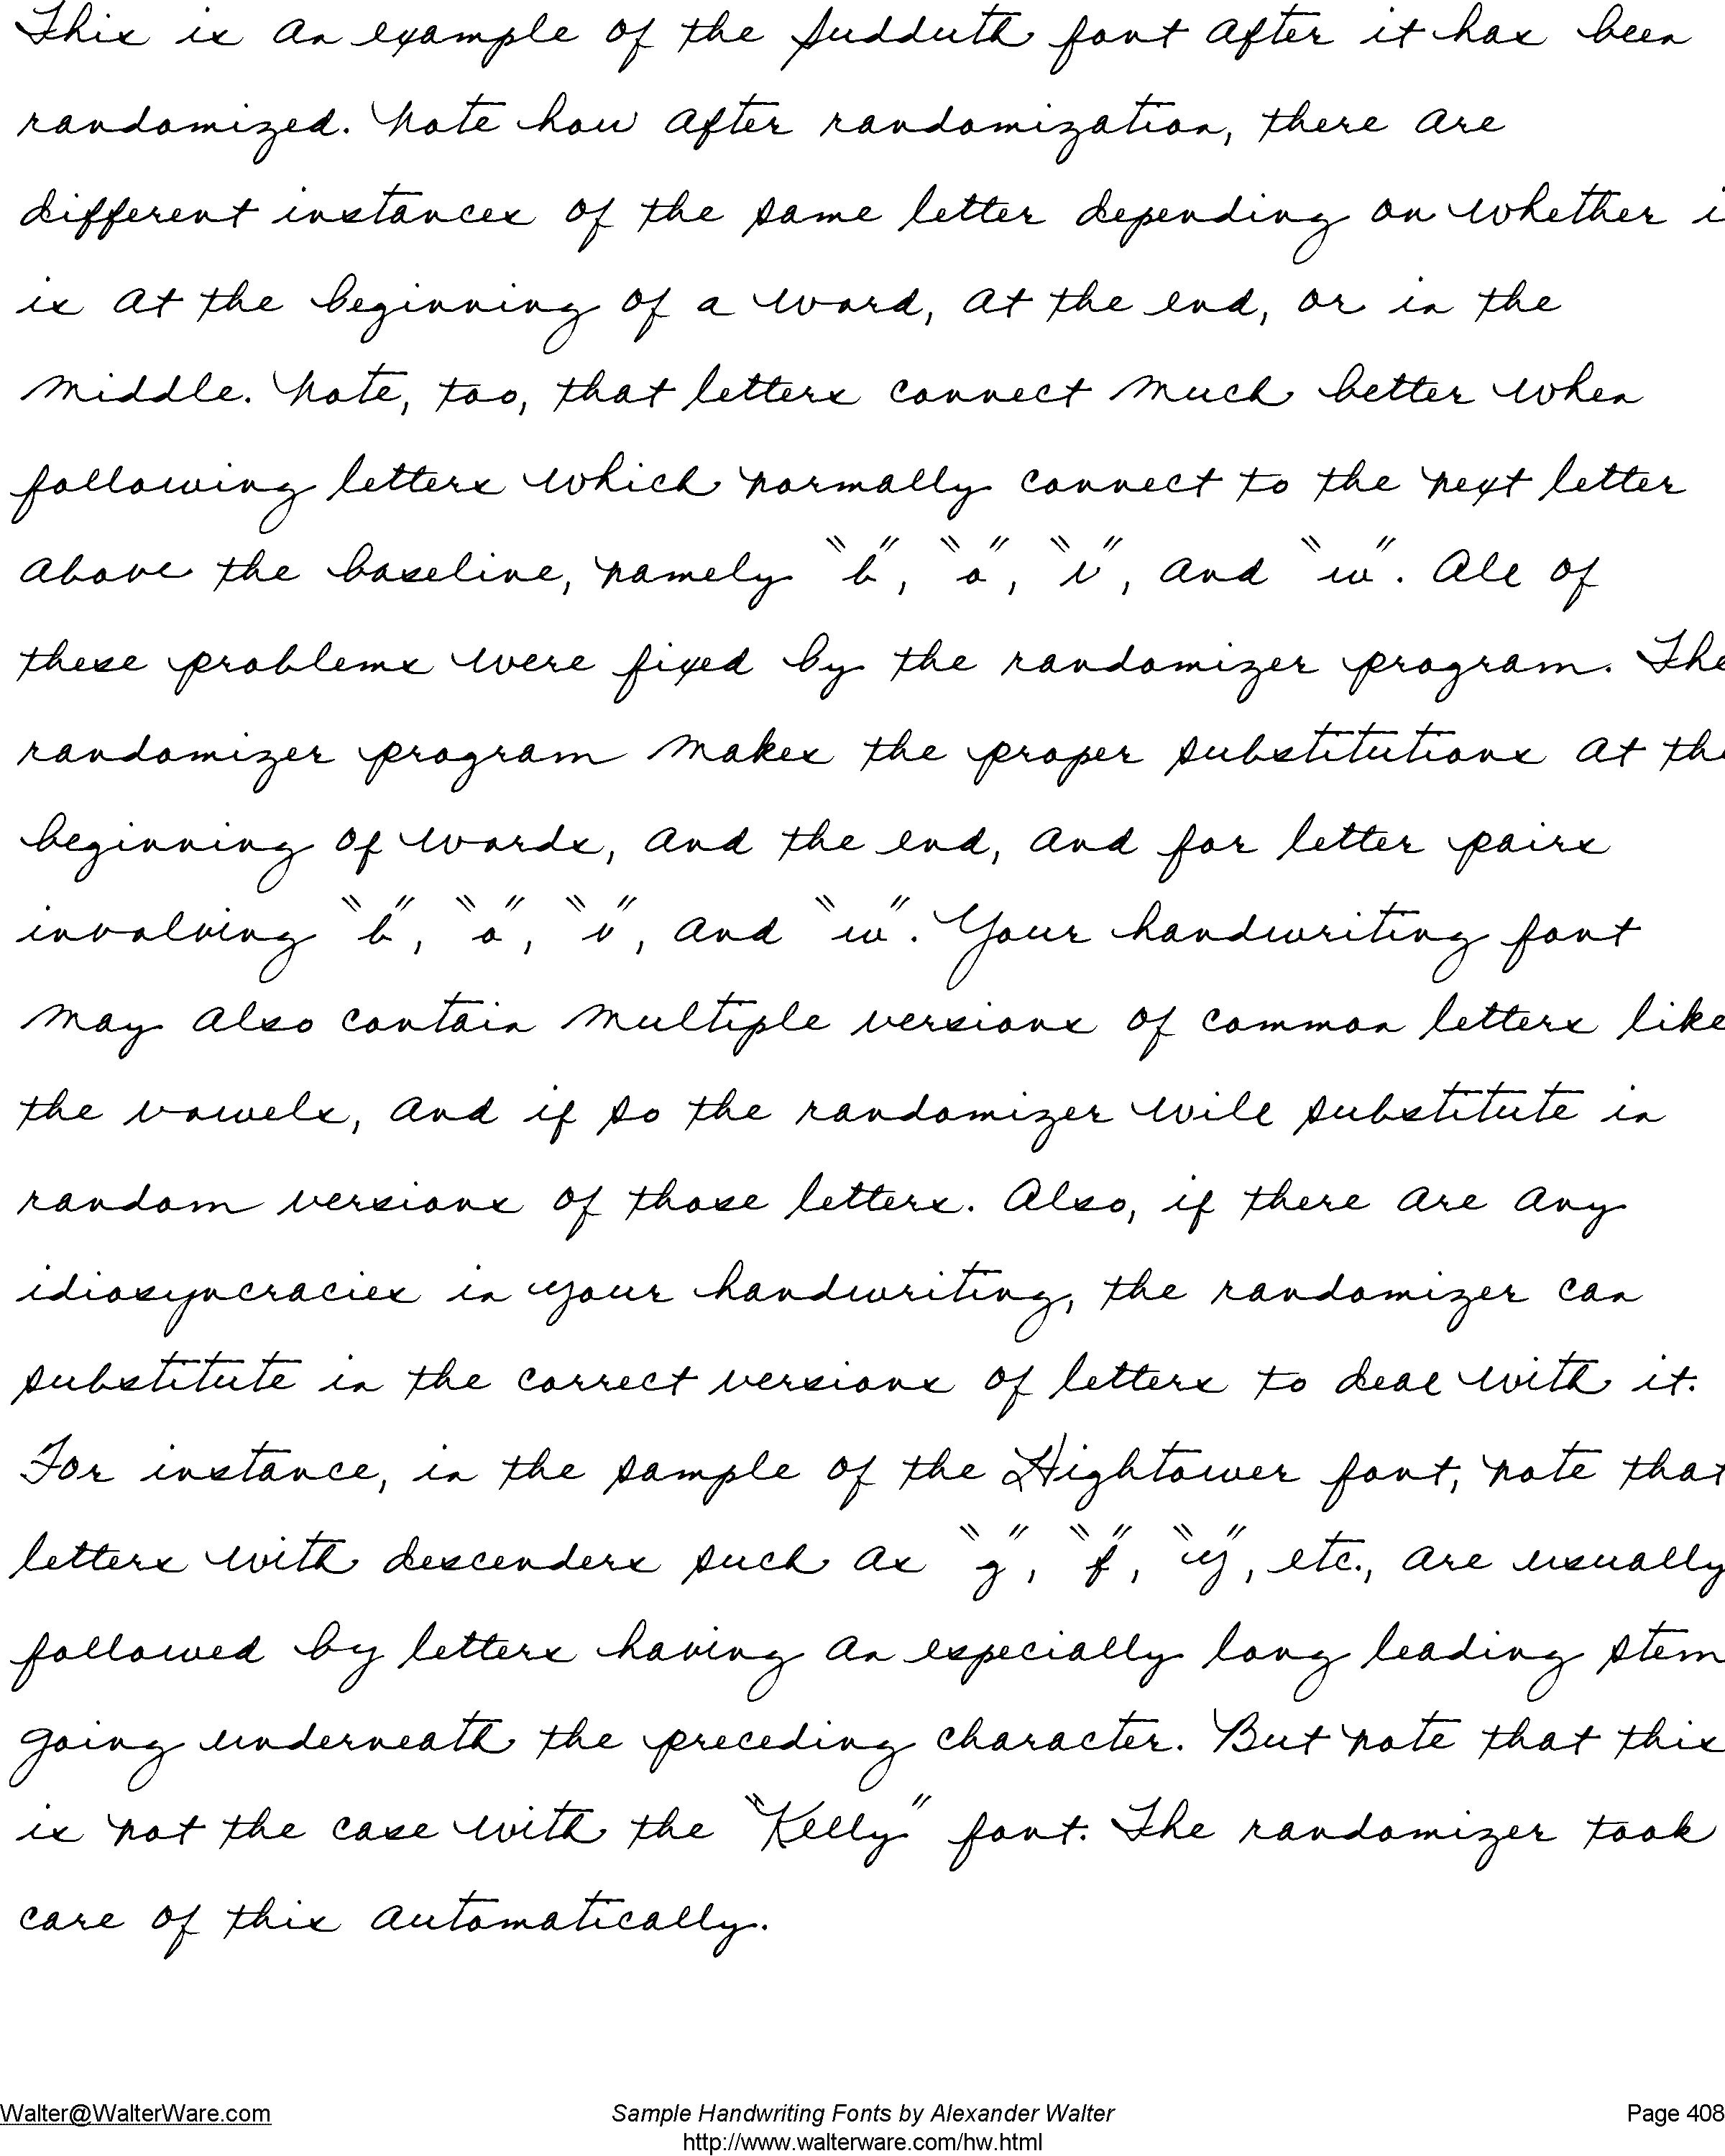 This is an example of the Sudduth font after it has been
randomized. Note how after randomization, there are
different instances of the same letter depending on whether i
is at the beginning of a word, at the end, or in the
middle. Note, too, that letters connect much better when
following letters which normally connect to the next letter
above the baseline, namely "b", "o", "v", and "w". All of
these problems were fixed by the randomizer program. The
randomizer program makes the proper substitutions at the
beginning of words, and the end, and for letter pairs
involving "b", "o", "v", and "w". Your handwriting font
may also contain multiple versions of common letters like
the vowels, and if so the randomizer will substitute in
random versions of those letters. Also, if there are any
idiosyncracies in your handwriting, the randomizer can
substitute in the correct versions of letters to deal with it.
For instance, in the sample of the Hightower font, note that
letters with descenders such as "g", "f", "y", etc., are usually
followed by letters having an especially long leading stem
going underneath the preceding character. But note that this
is not the case with the "Kelly" font. The randomizer took
care of this automatically.
Walter@WalterWare.com Sample Handwriting Fonts by Alexander Walter Page 408
http://www.walterware.com/hw.html